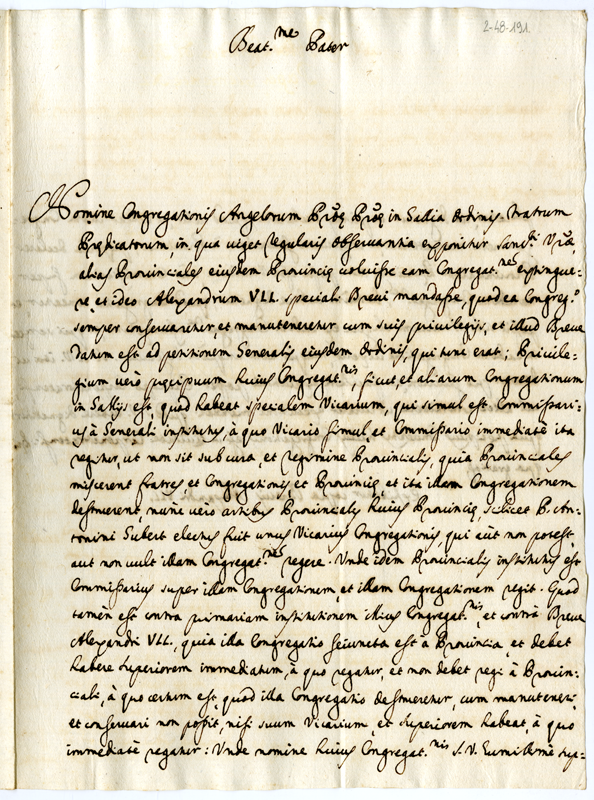 2-48-191.
Beat.me Pater
Nomine Congregationis Angelorum in Gallia Ordinis Fratrum
Prędicatorum, in qua uiget regularis obseruantia exponitur Sanct.ti V.rę,
alias Prouinciales eiusdem Prouincię uoluisse eam Congregat.nes extingue-
re, et ideo Alexandrum VII. speciali Breui mandasse, quod ea Congreg.o
semper conseruaretur, et manuteneretur cum suis priuilegijs, et illud Breue
datum est ad petitionem Generalis eiusdem Ordinis, qui tunc erat; Priuile-
gium uero pręcipuum huius Congregat.nis, sicut et aliarum Congregationum
in Gallijs est, quod habeat specialem Vicarium, qui simul est Commissari-
us à Generali institutus, à quo Vicario simul, et Commissario immediatè ita
regitur, ut non sit sub cura, et regimine Prouincialis, quia Prouinciales
miscerent fratres, et Congregationis, et Prouincię, et ita illam Congregationem
destruerent nunc uero artibus Prouincialis huius Prouincię, scilicet P. An-
tonini Gubert electus fuit unus Vicarius Congregationis qui aut non potest,
aut non uult illam Congregat.nes regere. Vnde idem Prouincialis institutus est
Commissarius super illam Congregationem, et illam Congregationem regit. Quod
tamèn est contra primariam institutionem illius Congregat.nis, et contrà Breue
Alexandri VII., quia illa Congregatio seiuncta est à Prouincia, et debet
habere superiorem immediatum, à quo regatur, et non debet regi à Prouin-
ciali, à quo certum est, quod illa Congregatio destrueretur, cum manuteneri,
et conseruari non possit, nisi suum Vicarium, et superiorem habeat, à quo
immediatè regatur: Vnde nomine huius Congregat.nis S. V. humillimè sup-